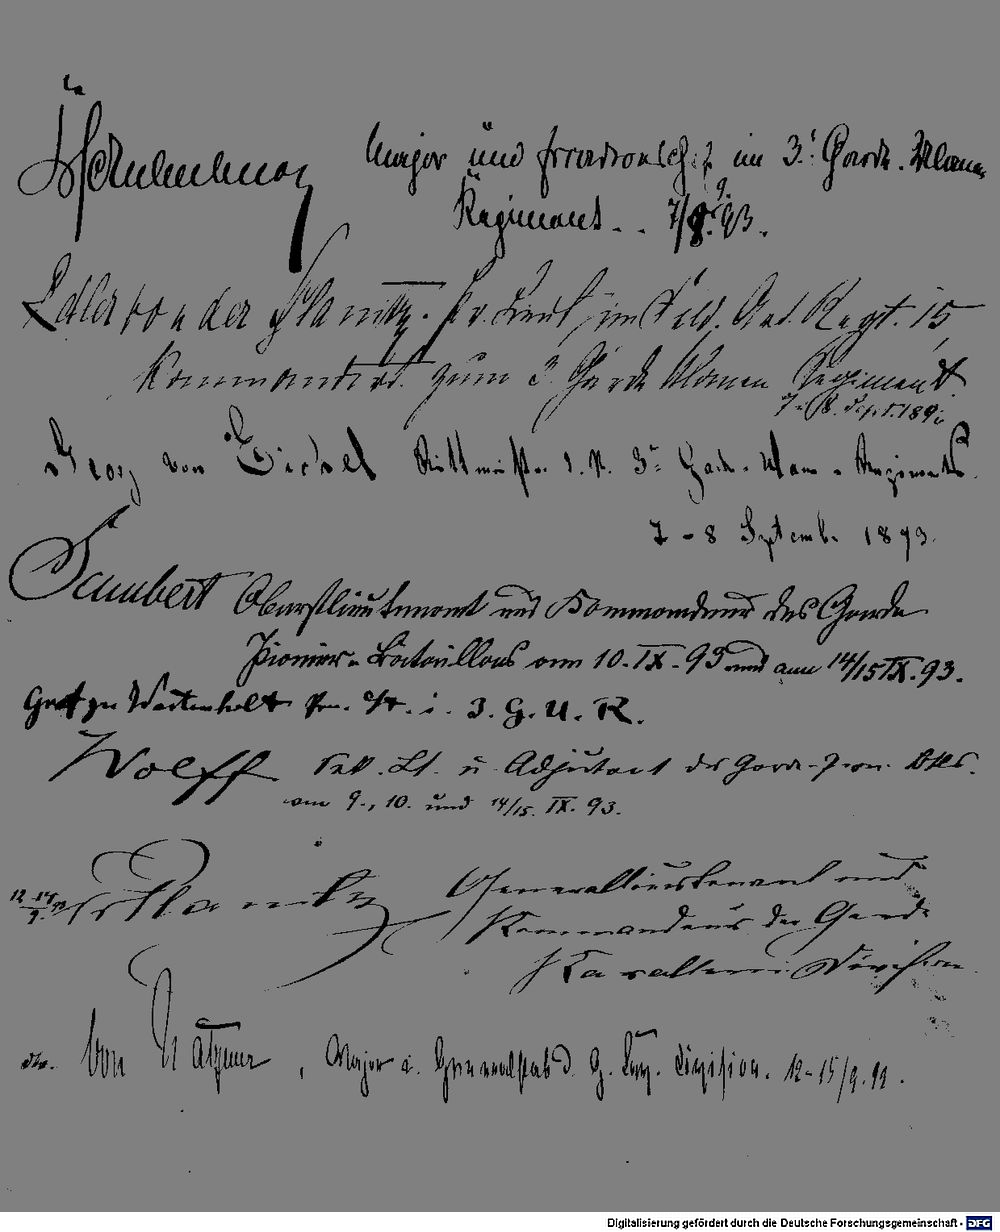 Major und Escadronschef im 3. Garde. Ulanen
Regiment.. 7/8. 9. 93.
Edler von der Planitz. Pr. Lieut. im Feld. Art. Regt. 15
Kommandiert zum 3. Garde Ulanen Regiment
7.-8. Sept. 189
Georg von Eichel Rittmeister 3. Garde-Ulan.-Regiments.
7-8 Septemb. 1893.
Schubert Oberstlieutenant und Kommandeur des Garde
Pionier-Bataillons vom 10. IX. 93 und zum 14/15 IX. 93.
Graf zu i. 3. G. U. R.
Wolff Sek. Lt. u. Adjutant des Garde-Pion. Btls.
am 9., 10. und 14/15. IX. 93.
12-14 9. 93 Planitz Generallieutenant und
Kommandeur der Garde
Kavallerie Division.
von Natzmer, Major i. Generalstab d. G. Cav. Division. 12-15/9. 93.
Digitalisierung gefördert durch die Deutsche Forschungsgemeinschaft - DFG